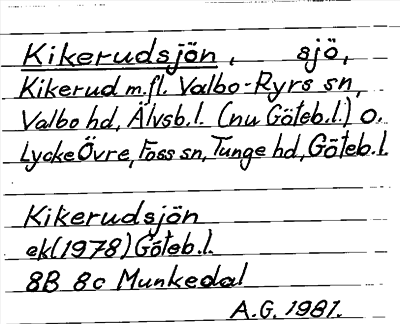 Kikerudsjön, sjö,
Kikerud m.fl. Valbo-Ryrs sn,
Valbo hd, Älvsb.l. (nu Göteb.l.) o.
Lycke Övre, Foss sn, Tunge hd, Göteb.l.
Kikerudsjön
ek(1978) Göteb.l.
8B 8c Munkedal
A.G. 1981.